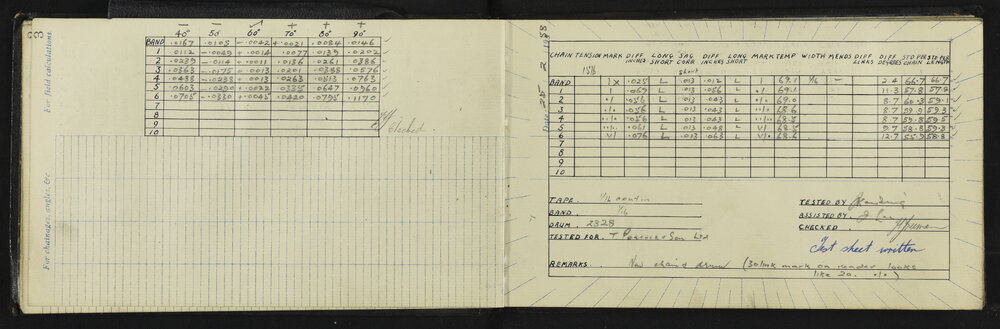 3
For field calculations
For chainages, angles, &c.
— — ✓ + + +
40° 50° 60° 70° 80° 90°
BAND .0167 .0105 -.0042 +.0021 .0084 .0146
1 .0112 -.0049 +.0014 .0077 .0139 .0202
2 .0239 -.0114 +.0011 .0136 .0261 .0386
3 .0363 -.0175 + .0013 .0201 .0388 .0576
4 .0488 -.0238 + .0013 .0263 .0513 .0763
5 .0603 -.0290 + .0022 .0335 .0647 .0960
6 .0705 -.0330 +.0045 .0420 .0795 .1170
7
8
9
10
checked.
CHAIN TENSION MARK DIFF INCHES LONG SHORT SAG CORR DIFF INCHES LONG SHORT MARK TEMP WIDTH MENDS DIFF LINKS DIFF DEGREES STD PER CHAIN STD PER LENGTH
15lb Short
BAND 1 x .025 L .013 .012 L 69.1 1/16 — 2.4 66.7 66.7
1 1 .069 L .013 .056 L 69.1 11.3 57.8 57.9
2 .056 L .013 .043 L 69.0 8.7 60.3 59.1
3 .056 L .013 .043 L 68.6 8.7 59.9 59.3
4 .056 L .013 .043 L 68.5 8.7 59.8 59.5
5 .061 L .013 .048 L V1 68.5 9.7 58.8 59.3
6 V1 .076 L .013 .063 L V1 68.6 12.7 55.9 58.8
7
8
9
10
TAPE.
BAND. 1/16
DRUM. 2328
TESTED FOR. T Peacock & Son Ltd
TESTED BY
ASSISTED BY.
CHECKED
Test sheet written
REMARKS. New chain & drum (30 link mark on reader looks
like 20.